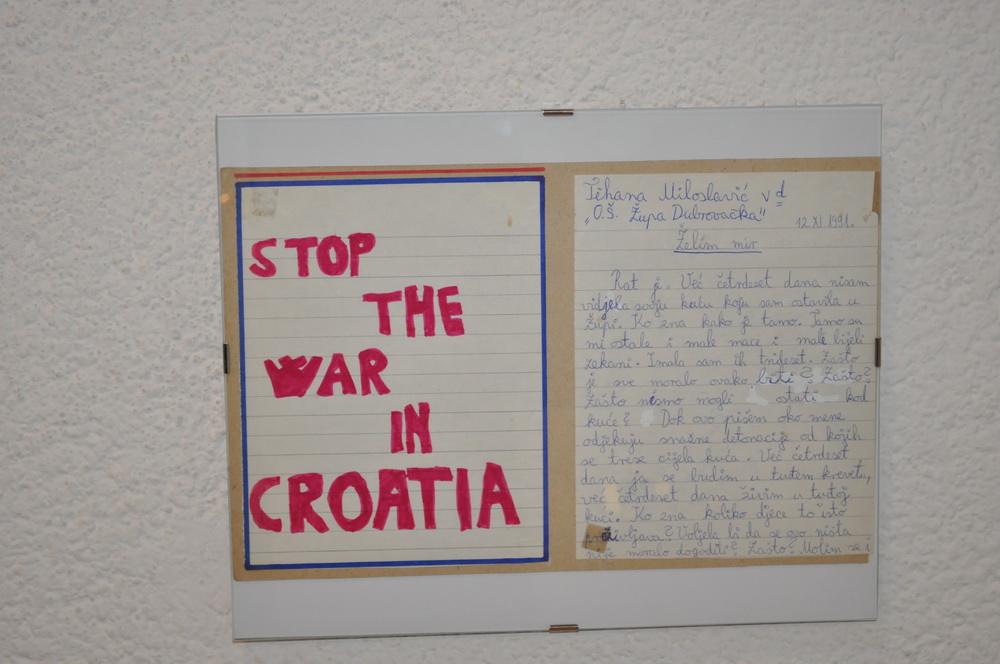 STOP
THE
WAR
IN
CROATIA
Tihana Miloslavić V d
"O.Š. Župa Dubrovačka"
12.XI 1991.
Želim mir
Rat je. Već četrdeset dana nisam
vidjela svoju kuću koju sam ostavila u
Župi. Ko zna kako je tamo. Tamo su
mi ostale i male mace i male bijeli
zekani. Imala sam ih trideset. Zašto
je sve moralo ovako biti? Zašto?
Zašto nismo mogli ostati kod
kuće? Dok ovo pišem oko mene
odjekuju snažne detonacije od kojih
se trese cijela kuća. Već četrdeset
dana ja se budim u tuđem krevetu,
već četrdeset dana živim u tuđoj
kući. Ko zna koliko djece to isto
proživljava? Voljela bi da se ovo ništa
nije moralo dogoditi? Zašto? Molim se i